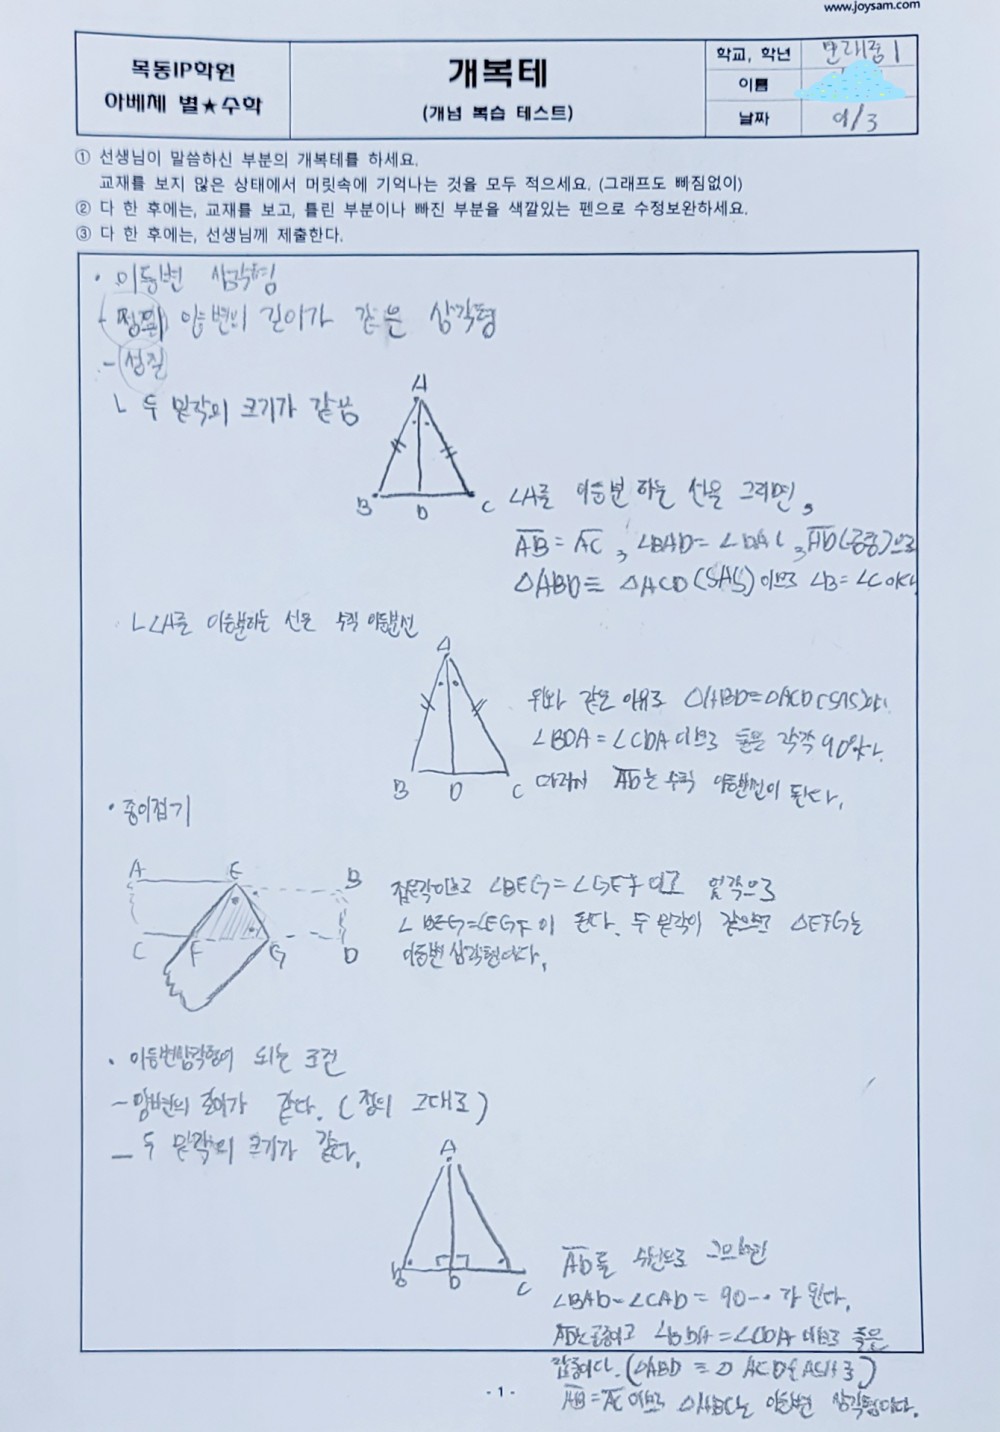 www.joysam.com
목동IP학원
아베체 별★수학
개복테
(개념 복습 테스트)
학교, 학년 문래중1
이름
날짜 9/3
① 선생님이 말씀하신 부분의 개복테를 하세요.
교재를 보지 않은 상태에서 머릿속에 기억나는 것을 모두 적으세요. (그래프도 빠짐없이)
② 다 한 후에는, 교재를 보고, 틀린 부분이나 빠진 부분을 색깔있는 펜으로 수정보완하세요.
③ 다 한 후에는, 선생님께 제출한다.
• 이등변 삼각형
- 정의 양변의 길이가 같은 삼각형
- 성질
ㄴ 두 밑각의 크기가 같음
A
B D C
∠A를 이등분 하는 선을 그리면,
AB = AC, ∠BAD = ∠DAC, AD(공통)으로
△ABD ≡ △ACD (SAS) 이므로 ∠B = ∠C
ㄴ ∠A를 이등분하는 선은 수직 이등분선
A
B D C
위와 같은 이유로 △ABD≡△ACD (SAS)
∠BDA = ∠CDA 이므로 둘은 각각 90°
따라서 AD는 수직 이등분선이 된다.
• 종이접기
A E B
C F G D
접은각이므로 ∠BEG = ∠GEF 이고 엇각으로
∠BEG = ∠EGF 이 된다. 두 밑각이 같으므로 △EFG는
이등변 삼각형이다.
• 이등변삼각형이 되는 조건
- 양변의 길이가 같다. (정의 그대로)
- 두 밑각의 크기가 같다.
A
B D C
AD를 수선으로 그으면
∠BAD = ∠CAD = 90-• 가 된다.
AD는 공통이고 ∠BDA = ∠CDA 이므로 둘은
합동이다. (△ABD ≡ △ACD ASA
AB = AC 이므로 △ABC는 이등변 삼각형이다.
- 1 -